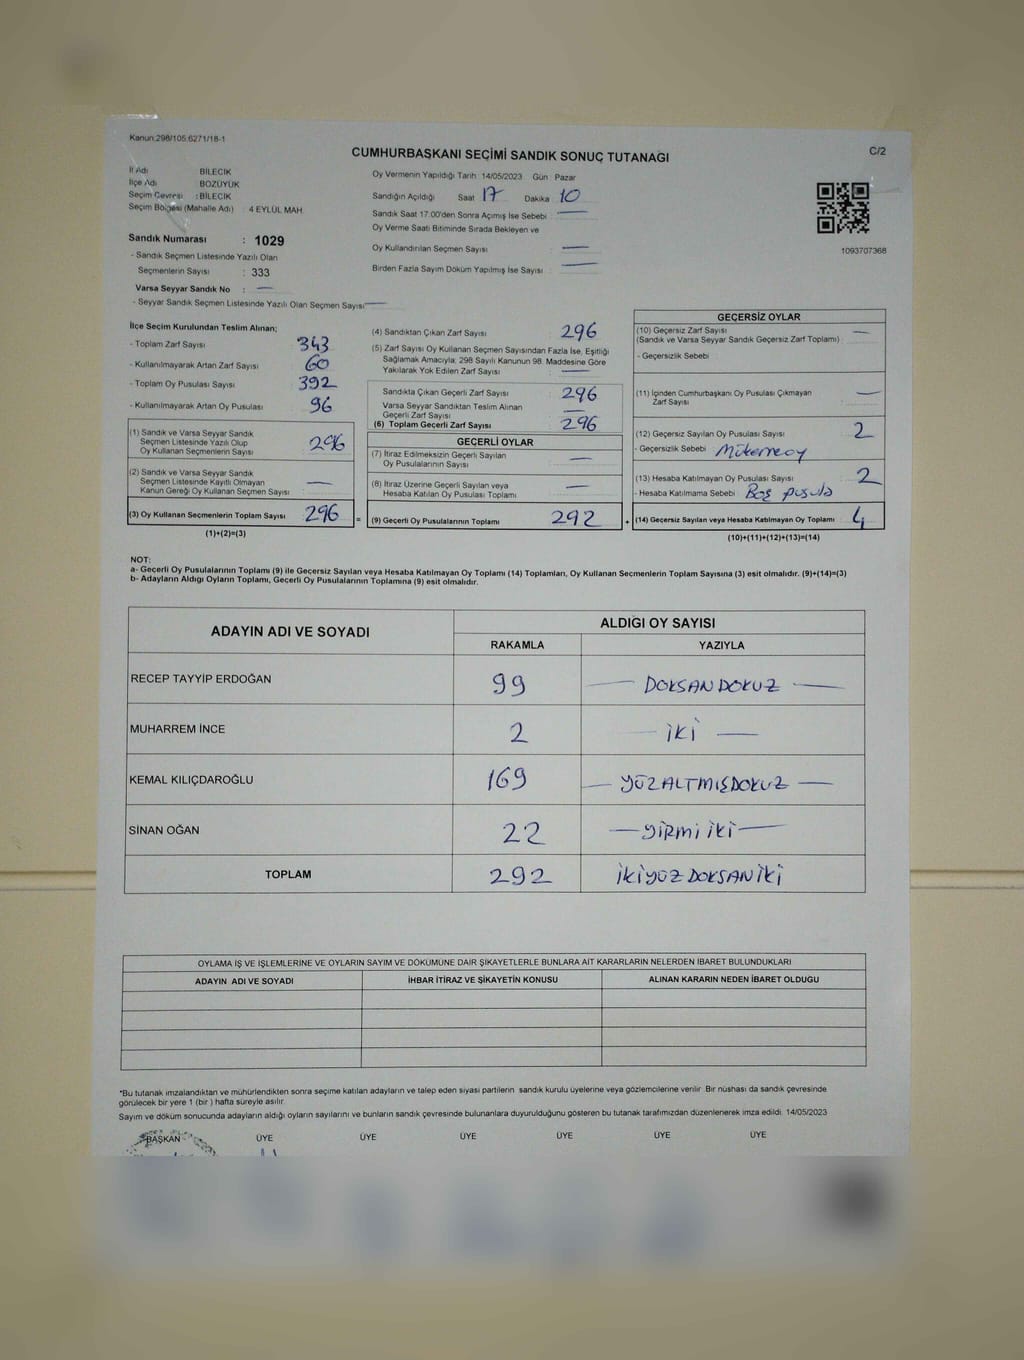 Kanun:298/105:6271/18-1
CUMHURBAŞKANI SEÇİMİ SANDIK SONUÇ TUTANAĞI
C/2
İl Adı BİLECİK
İlçe Adı BOZÜYÜK
Seçim Çevresi : BİLECİK
Seçim Bölgesi (Mahalle Adı) : 4 EYLÜL MAH.
Oy Vermenin Yapıldığı Tarih 14/05/2023 Gün Pazar
Sandığın Açıldığı Saat 17 Dakika 10
Sandık Saat 17:00'den Sonra Açımış İse Sebebi : —
Oy Verme Saati Bitiminde Sırada Bekleyen ve
Oy Kullandırılan Seçmen Sayısı : —
Birden Fazla Sayım Döküm Yapılmış İse Sayısı : —
1093707368
Sandık Numarası : 1029
- Sandık Seçmen Listesinde Yazılı Olan
Seçmenlerin Sayısı : 333
Varsa Seyyar Sandık No : —
- Seyyar Sandık Seçmen Listesinde Yazılı Olan Seçmen Sayısı —
İlçe Seçim Kurulundan Teslim Alınan;
- Toplam Zarf Sayısı : 343
- Kullanılmayarak Artan Zarf Sayısı : 60
- Toplam Oy Pusulası Sayısı : 392
- Kullanılmayarak Artan Oy Pusulası : 96
(1) Sandık ve Varsa Seyyar Sandık
Seçmen Listesinde Yazılı Olup
Oy Kullanan Seçmenlerin Sayısı : 296
(2) Sandık ve Varsa Seyyar Sandık
Seçmen Listesinde Kayıtlı Olmayan
Kanun Gereği Oy Kullanan Seçmen Sayısı : —
(3) Oy Kullanan Seçmenlerin Toplam Sayısı : 296 =
(1)+(2)=(3)
(4) Sandıktan Çıkan Zarf Sayısı : 296
(5) Zarf Sayısı Oy Kullanan Seçmen Sayısından Fazla İse, Eşitliği
Sağlamak Amacıyla; 298 Sayılı Kanunun 98. Maddesine Göre
Yakılarak Yok Edilen Zarf Sayısı : —
Sandıkta Çıkan Geçerli Zarf Sayısı : 296
Varsa Seyyar Sandıktan Teslim Alınan
Geçerli Zarf Sayısı : —
(6) Toplam Geçerli Zarf Sayısı : 296
GEÇERLİ OYLAR
(7) İtiraz Edilmeksizin Geçerli Sayılan
Oy Pusulalarının Sayısı : —
(8) İtiraz Üzerine Geçerli Sayılan veya
Hesaba Katılan Oy Pusulası Toplamı : —
(9) Geçerli Oy Pusulalarının Toplamı : 292 +
GEÇERSİZ OYLAR
(10) Geçersiz Zarf Sayısı : —
(Sandık ve Varsa Seyyar Sandık Geçersiz Zarf Toplamı)
- Geçersizlik Sebebi
(11) İçinden Cumhurbaşkanı Oy Pusulası Çıkmayan
Zarf Sayısı : —
(12) Geçersiz Sayılan Oy Pusulası Sayısı : 2
- Geçersizlik Sebebi
(13) Hesaba Katılmayan Oy Pusulası Sayısı : 2
- Hesaba Katılmama Sebebi : Boş pusula
(14) Geçersiz Sayılan veya Hesaba Katılmayan Oy Toplamı : 4
(10)+(11)+(12)+(13)=(14)
NOT:
a- Geçerli Oy Pusulalarının Toplamı (9) ile Geçersiz Sayılan veya Hesaba Katılmayan Oy Toplamı (14) Toplamları, Oy Kullanan Seçmenlerin Toplam Sayısına (3) eşit olmalıdır. (9)+(14)=(3)
b- Adayların Aldığı Oyların Toplamı, Geçerli Oy Pusulalarının Toplamına (9) eşit olmalıdır.
ADAYIN ADI VE SOYADI ALDIĞI OY SAYISI
RAKAMLA YAZIYLA
RECEP TAYYİP ERDOĞAN 99 — DOKSAN DOKUZ —
MUHARREM İNCE 2 — İKİ —
KEMAL KILIÇDAROĞLU 169 — YÜZALTMIŞDOKUZ —
SİNAN OĞAN 22 — YİRMİ İKİ —
TOPLAM 292 İKİYÜZ DOKSAN İKİ
OYLAMA İŞ VE İŞLEMLERİNE VE OYLARIN SAYIM VE DÖKÜMÜNE DAİR ŞİKAYETLERLE BUNLARA AİT KARARLARIN NELERDEN İBARET BULUNDUKLARI
ADAYIN ADI VE SOYADI İHBAR İTİRAZ VE ŞİKAYETİN KONUSU ALINAN KARARIN NEDEN İBARET OLDUĞU
*Bu tutanak imzalandıktan ve mühürlendikten sonra seçime katılan adayların ve talep eden siyasi partilerin sandık kurulu üyelerine veya gözlemcilerine verilir. Bir nüshası da sandık çevresinde
görülecek bir yere 1 (bir ) hafta süreyle asılır.
Sayım ve döküm sonucunda adayların aldığı oyların sayılarını ve bunların sandık çevresinde bulunanlara duyurulduğunu gösteren bu tutanak tarafımızdan düzenlenerek imza edildi. 14/05/2023
BAŞKAN ÜYE ÜYE ÜYE ÜYE ÜYE ÜYE